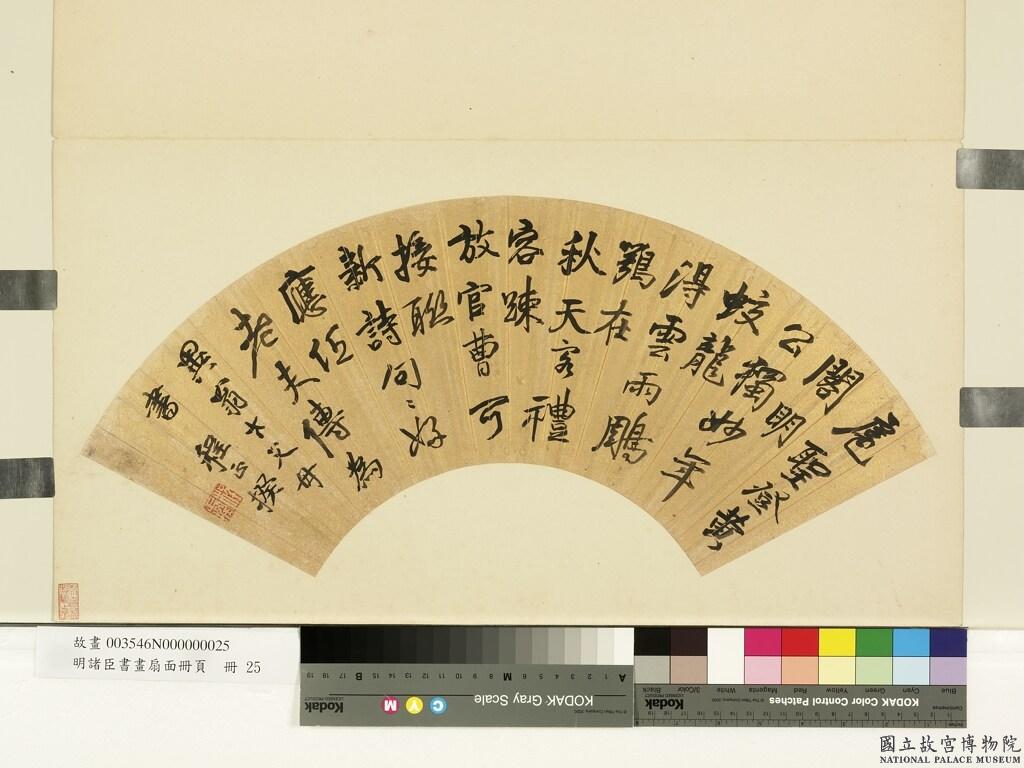 扈聖登黃
閣明
公獨妙年
蛟龍
得雲雨鵰
鶚在
秋天客禮
容踈
放官曹可
接聯
新詩句〻好
應任
老夫傳為
翁大父母
書 程正揆
故畫 003546N000000025
明諸臣書畫扇面冊頁 冊 25
KODAK Gray Scale
Kodak
C Y M
A 1 2 3 4 5 6 M 8 9 10 11 12 13 14 15 B 17 18 19
KODAK Color Control Patches
Kodak
Blue Cyan Green Yellow Red Magenta White 3/Color Black
國立故宮博物院
NATIONAL PALACE MUSEUM